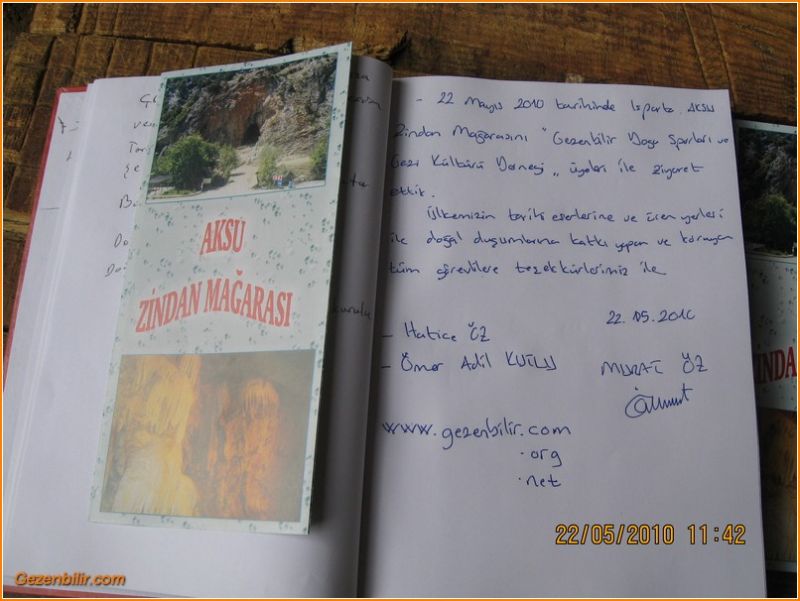 AKSU
ZINDAN MAĞARASI
- 22 Mayıs 2010 tarihinde Isparta. AKSU
Zindan Mağarasını "Gezenbilir Doga Sporları ve
Gezi Kültürü Derneği" üyeleri ile ziyaret
ettik.
Ülkemizin tarihi eserlerine ve ören yerleri
ile doğal katkı yapan ve koruyan
tüm görevlilere teşekkürlerimiz ile
22.05.2010
- Hatice ÖZ
- Ömer Adil KUTLU
MURAT ÖZ
www.gezenbilir.com
.org
.net
22/05/2010 11:42
Gezenbilir.com